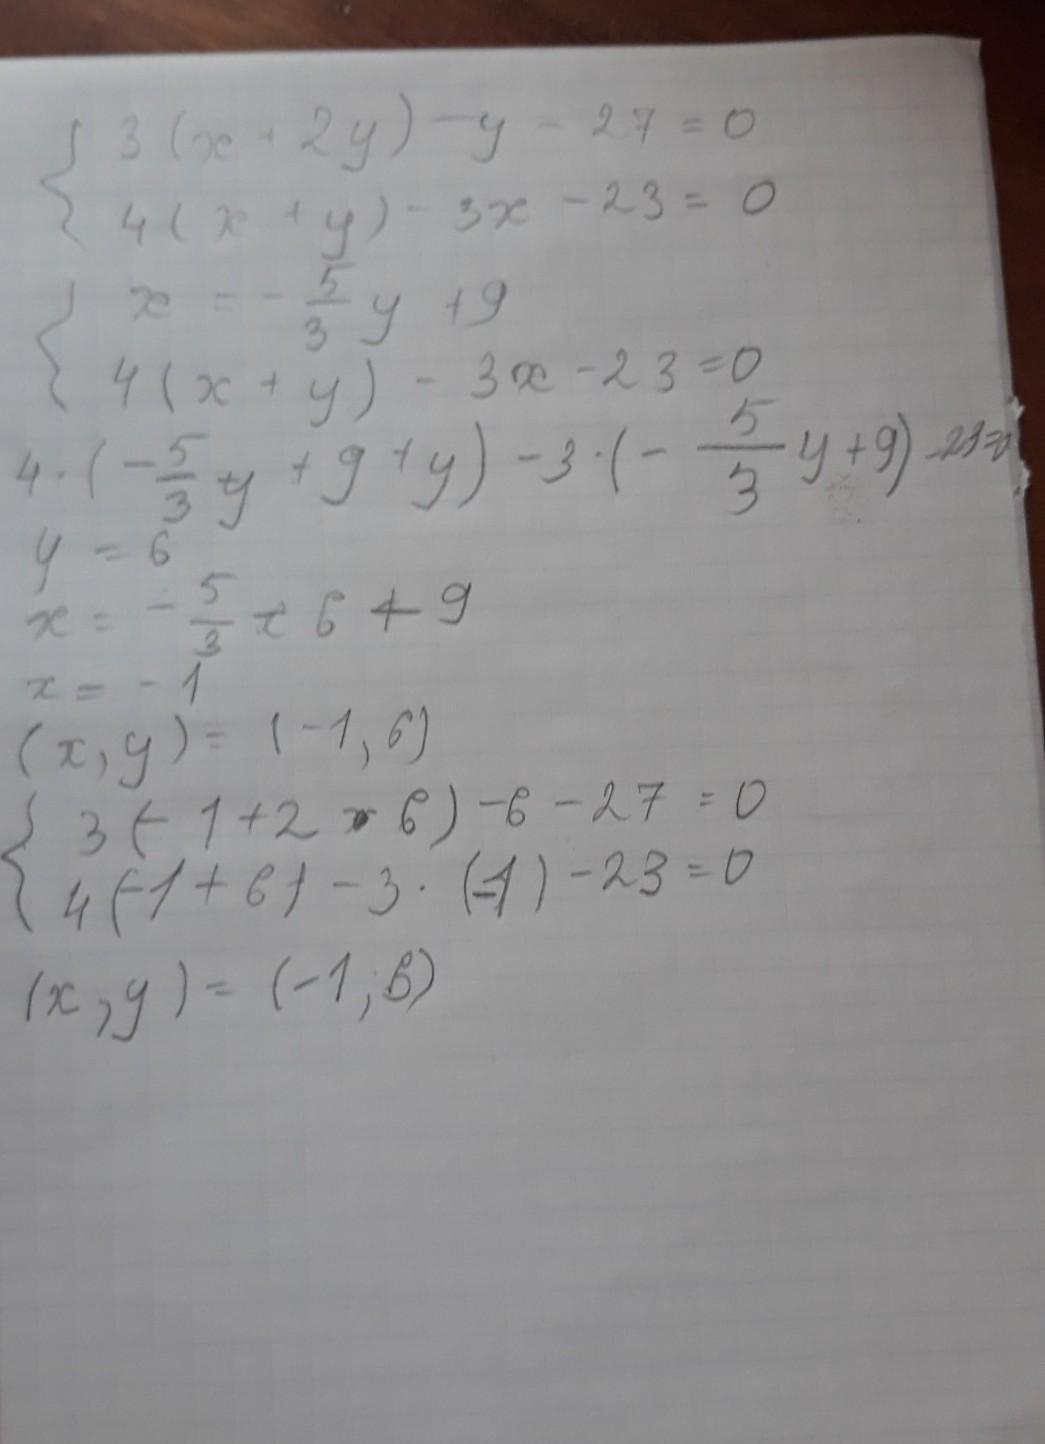 3(x + 2y) - y - 27 = 0
4(x + y) - 3x - 23 = 0
x = - 5/3 y + 9
4(x + y) - 3x - 23 = 0
4 · (- 5/3 y + 9 + y) - 3 · (- 5/3 y + 9) - 23 = 0
y = 6
x = - 5/3 × 6 + 9
x = - 1
(x, y) = (-1, 6)
3(- 1 + 2 × 6) - 6 - 27 = 0
4(-1 + 6) - 3 · (-1) - 23 = 0
(x, y) = (-1; 6)